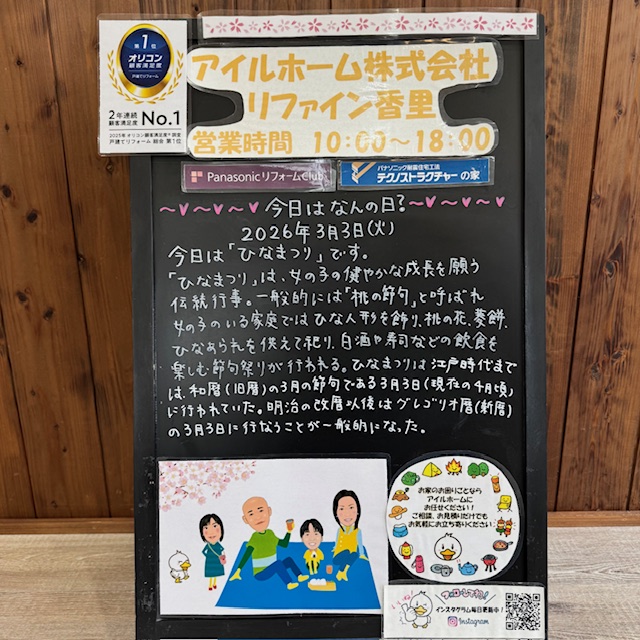 第1位
オリコン
顧客満足度
戸建てリフォーム
2年連続
顧客満足度
No.1
2025年 オリコン顧客満足度®調査
戸建てリフォーム 総合 第1位
アイルホーム株式会社
リファイン香里
営業時間 10:00~18:00
PanasonicリフォームClub
パナソニック耐震住宅工法
テクノストラクチャーの家
~♥~♥~♥今日はなんの日?~♥~♥~♥
2026年3月3日(火)
今日は「ひなまつり」です。
「ひなまつり」は、女の子の健やかな成長を願う
伝統行事。一般的には「桃の節句」と呼ばれ
女の子のいる家庭ではひな人形を飾り、桃の花、菱餅、
ひなあられを供えて祀り、白酒や寿司などの飲食を
楽しむ節句祭りが行われる。ひなまつりは江戸時代まで
は、和暦(旧暦)の3月の節句である3月3日(現在の4月頃)
に行われていた。明治の改暦以後はグレゴリオ暦(新暦)
の3月3日に行なうことが一般的になった。
お家のお困りごとなら
アイルホームに
お任せください!
ご相談、お見積りだけでも
お気軽にお立ち寄りください
フォローしてね!
インスタグラム毎日更新中!
Instagram